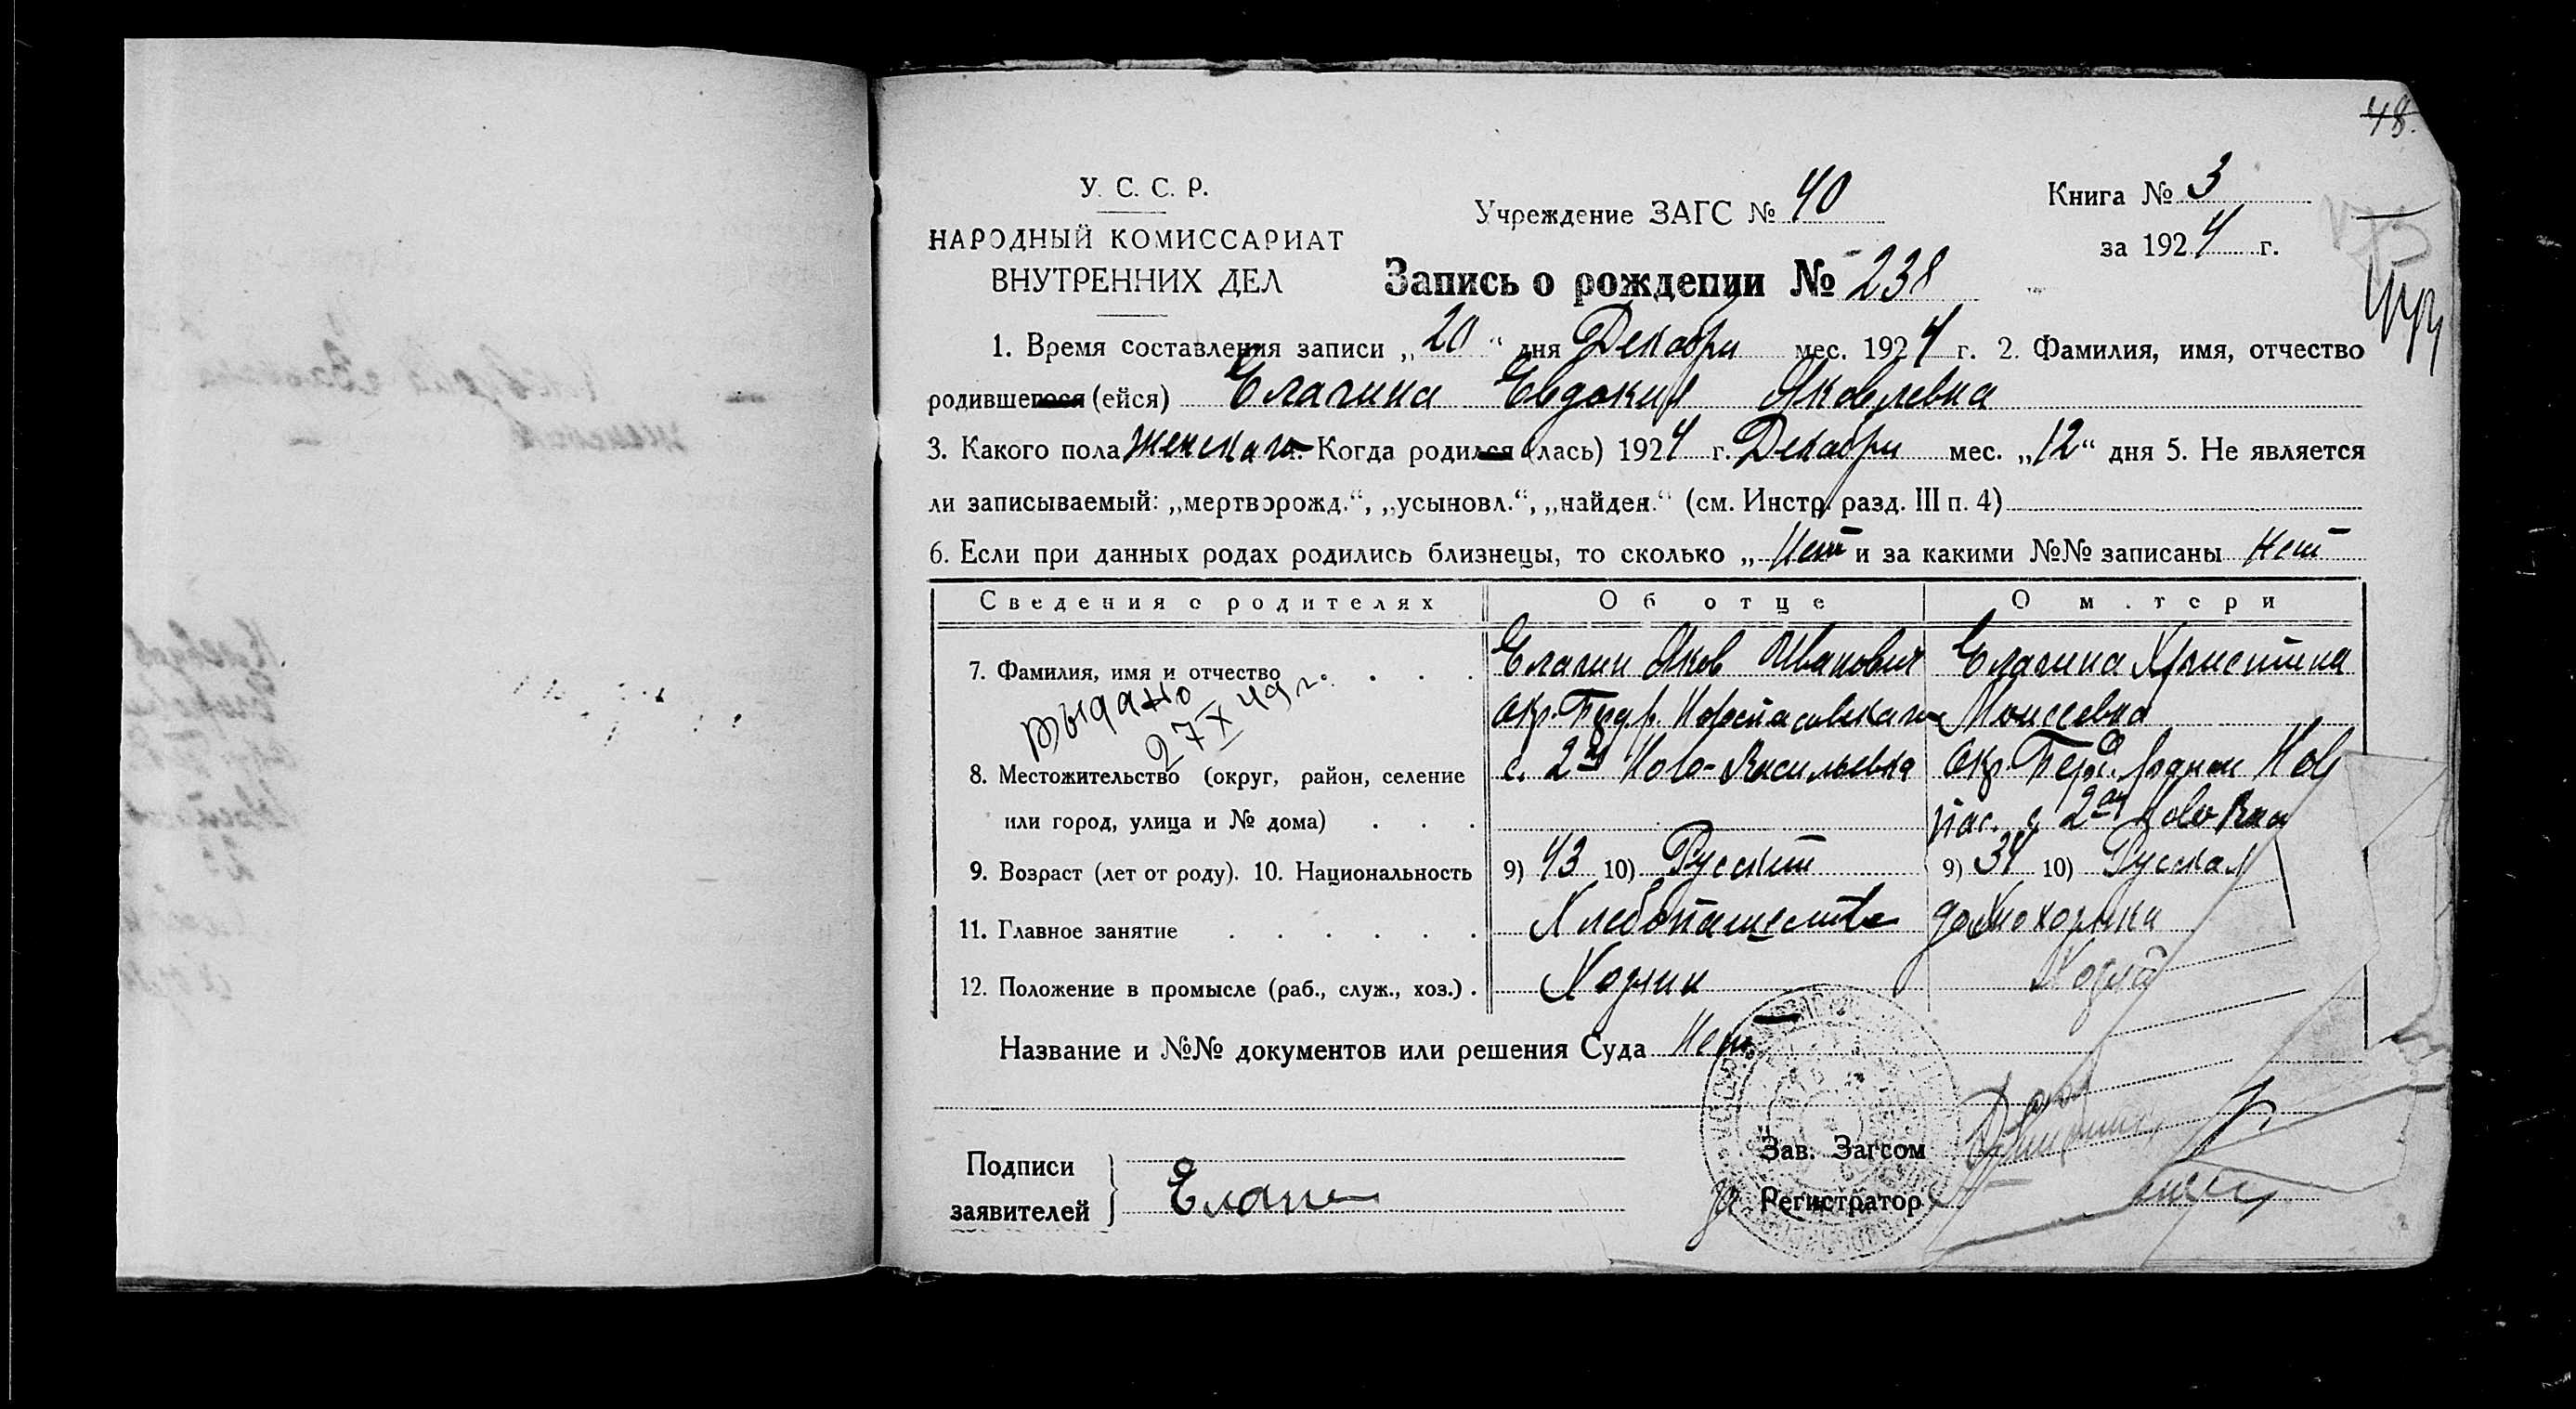 48.
У. С. С. Р.
НАРОДНЫЙ КОМИССАРИАТ
ВНУТРЕННИХ ДЕЛ
Учреждение ЗАГС № 40
Книга № 3
за 1924 г.
Запись о рождении № 238
1. Время составления записи „20“ дня Декабри мес. 1924 г. 2. Фамилия, имя, отчество
родившегося (ейся) Елагина Евдокия Яковлевна
3. Какого пола женскаго. Когда родился (лась) 1924 г. Декабри мес. „12“ дня 5. Не является
ли записываемый: „мертворожд.“, „усыновл.“, „найден.“ (см. Инстр. разд. III п. 4)
6. Если при данных родах родились близнецы, то сколько „Нет и за какими №№ записаны нет
Сведения о родителях Об отце О м.тери
7. Фамилия, имя и отчество Елагин Яков Иванович Елагина Христина
Моисеевна
выдано
27 X 49 г.
8. Местожительство (округ, район, селение с. 2я Ново-Васильевка
или город, улица и № дома)
9. Возраст (лет от роду). 10. Национальность 9) 43 10) Русский 9) 34 10) Русская
11. Главное занятие Хлебопашество домохозяйка
12. Положение в промысле (раб., служ., хоз.) Хозяин
Название и №№ документов или решения Суда Нет
Подписи
заявителей
Елагин
Зав. Загсом
за Регистратор